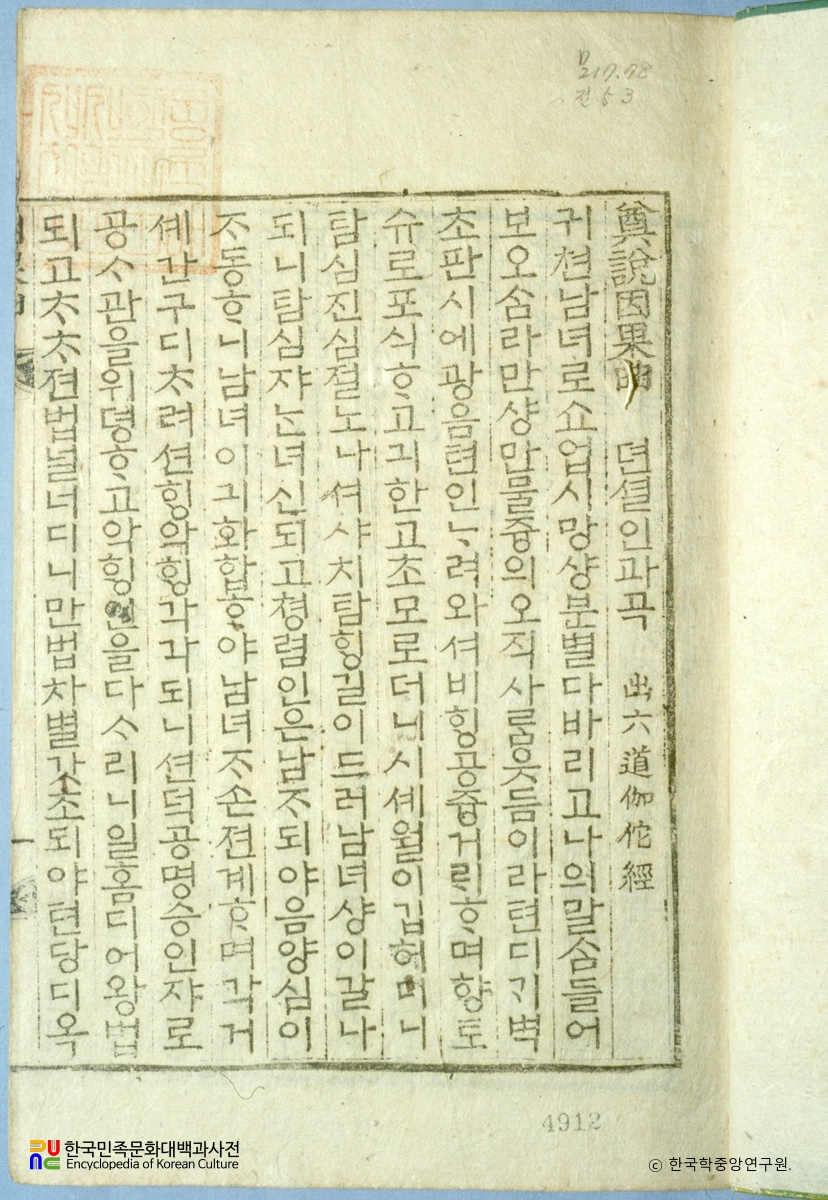 奠說因果曲 뎐셜인과곡 出六道伽佗經
귀쳔남녀로쇼업시망샹분별다바리고나의말ᄉᆞᆷ들어
보오ᄉᆞᆷ라만샹만물즁의오직사ᄅᆞᆷ읏듬이라텬디ᄀᆡ벽
초판시에광음텬인ᄂᆞ려와셔비ᄒᆡᆼ공즁거ᄅᆡᄒᆞ며향토
슈로포식ᄒᆞ고긔한고초모로더니시셰월이깁허며니
탐심진심절노나셔샤치탐ᄒᆡᆼ길이드러남녀샹이갈나
되니탐심쟈ᄂᆞᆫ녀신되고쳥렴인은남ᄌᆞ되야음양심이
ᄌᆞ동ᄒᆞ니남녀이긔화합ᄒᆞ야남녀ᄌᆞ손젼계ᄒᆞ며각거
셰간구디ᄎᆞ려션ᄒᆡᆼ악ᄒᆡᆼ각각되니션덕공명승인쟈로
공ᄉᆞ관을위뎡ᄒᆞ고악ᄒᆡᆼ인을다ᄉᆞ리니일홈디어왕법
되고ᄎᆞᄎᆞ젼법널너디니만법차별ᄀᆞᆺ초되야텬당디옥
一
217.78
전53
4912
한국민족문화대백과사전
Encyclopedia of Korean Culture
ⓒ 한국학중앙연구원.